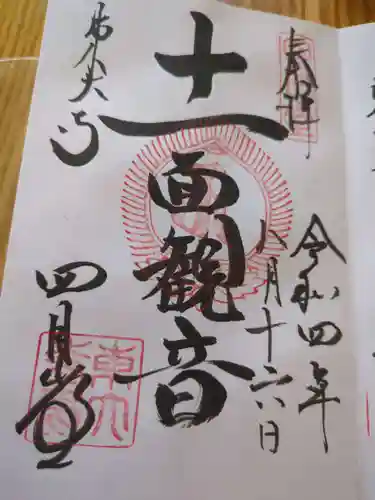 奉拝
令和四年
八月十六日
十一面観音
四月堂
東大寺